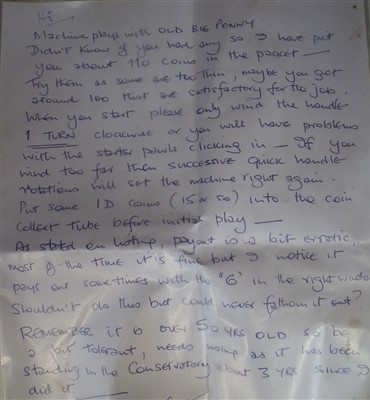 Hi
Machine plays with OLD BIG PENNY
Didn't know if you had any so I have put
you about 110 coins in the packet —
Try them as some are too thin, maybe you get
around 100 that are satisfactory for the job.
When you start please only wind the handle
1 TURN clockwise or you will have problems
with the starter pawls clicking in — If you
wind too far then successive quick handle
rotations will set the machine right again.
Put some 1D coins (15 or so) into the coin
collect Tube before initial play —
As stated on listing, payout is a bit erratic,
most of the time it is fine but I notice it
pays out sometimes with the "6" in the right window
Shouldn't do this but could never fathom it out?
REMEMBER it is over 50 YRS OLD so be
a bit tolerant, needs using as it has been
standing in the Conservatory about 3 YRS since I
did it —